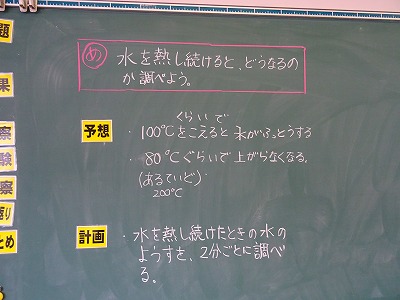 め 水を熱し続けると、どうなるの
か調べよう。
予想
くらいで
・100℃をこえると 水がふっとうする
・80℃ぐらいで上がらなくなる。
(あるていど)
200℃
計画
・水を熱し続けたときの水の
ようすを、2分ごとに調べ
る。
題
果
察
験
察
返り
とめ